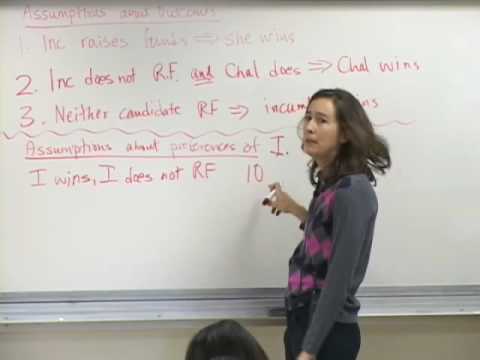 Assumptions about Outcomes
1. Inc raises funds ⇒ she wins
2. Inc does not R.F. and Chal does ⇒ Chal wins
3. Neither candidate RF ⇒ incum ins
Assumptions about preferences of I.
I wins, I does not RF 10